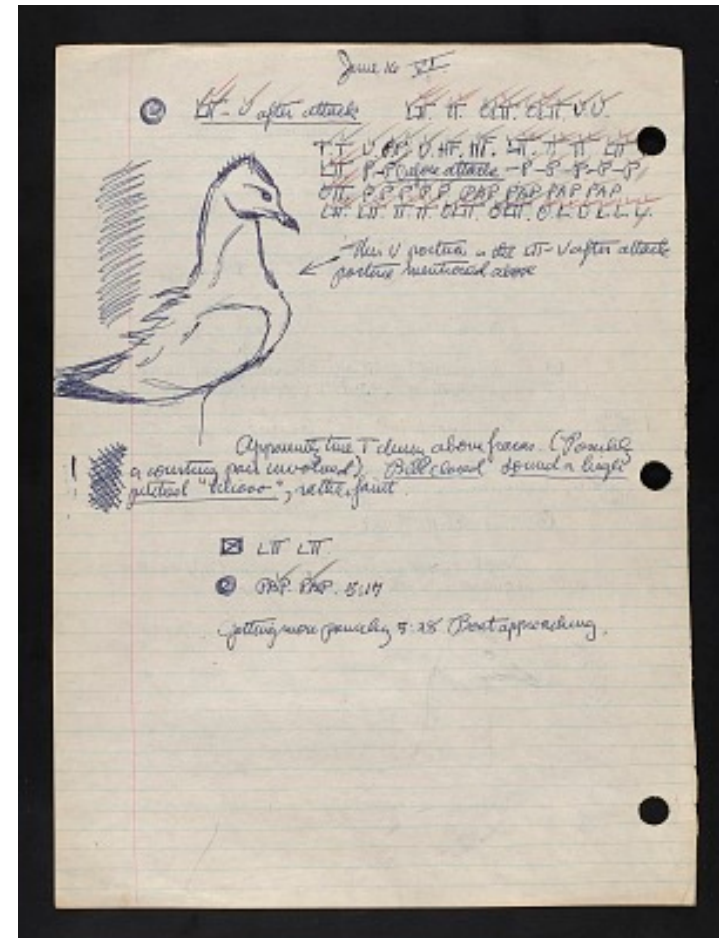 June 16 VI.
LTT - U after attack LTT. TT. OLTT. OLTT. U U.
T. T U U. HF. HF. LTT. TT TT LTT
LTT P-P (before attack -P-P-P-P-P
OTT P P P P P PAP PAP PAP PAP
LTT. LTT. TT. TT. OLTT. OLTT. U. L. U. L. L.
This U posture is the LTT - U after attack
posture mentioned above
Apparently true T during above fracas. (Possibly
a courting pair involved). Bill closed sound a high
pitched ", rather faint.
LTT LTT
PAP. PAP. 5:17
Getting more 5:28 Boat approaching.